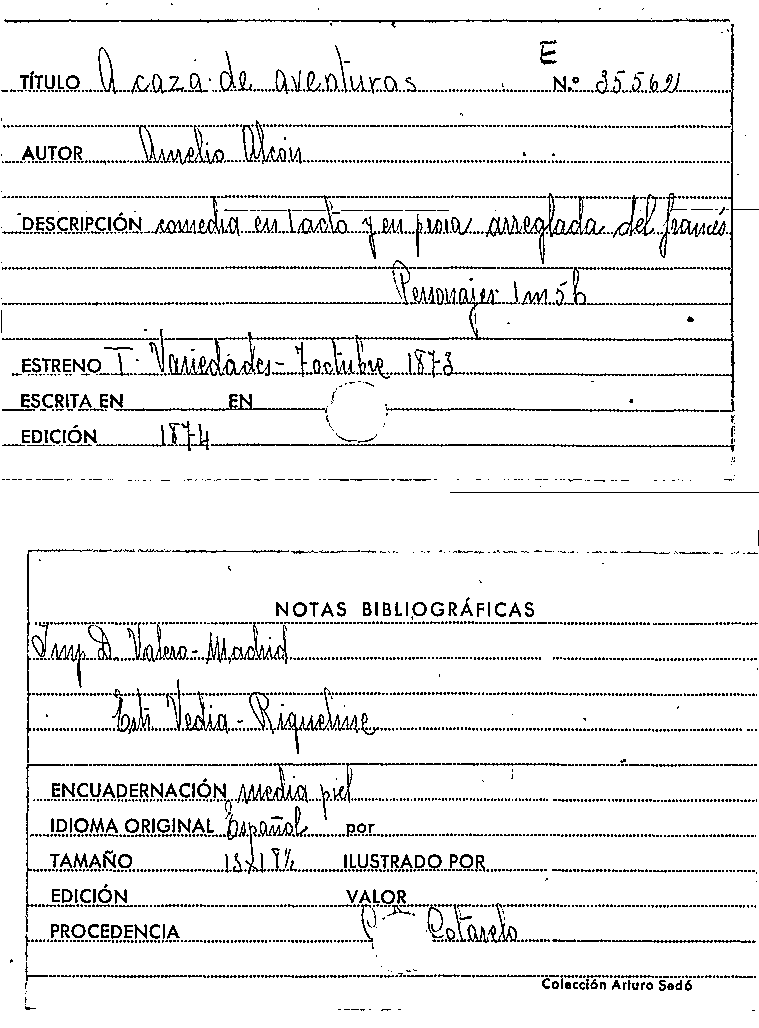 E
TÍTULO A caza de aventuras N.º 35562
AUTOR Aurelio Alcón
DESCRIPCIÓN comedia en 1 acto y en prosa arreglada del francés
Personajes 1m 5h
ESTRENO T. Variedades - 7 octubre 1873
ESCRITA EN EN
EDICIÓN 1874
NOTAS BIBLIOGRÁFICAS
Imp D. Valero - Madrid
Estr Vedia - Riquelme
ENCUADERNACIÓN media piel
IDIOMA ORIGINAL Español por
TAMAÑO ILUSTRADO POR
EDICIÓN VALOR
PROCEDENCIA Cotarelo
Colección Arturo Sedó